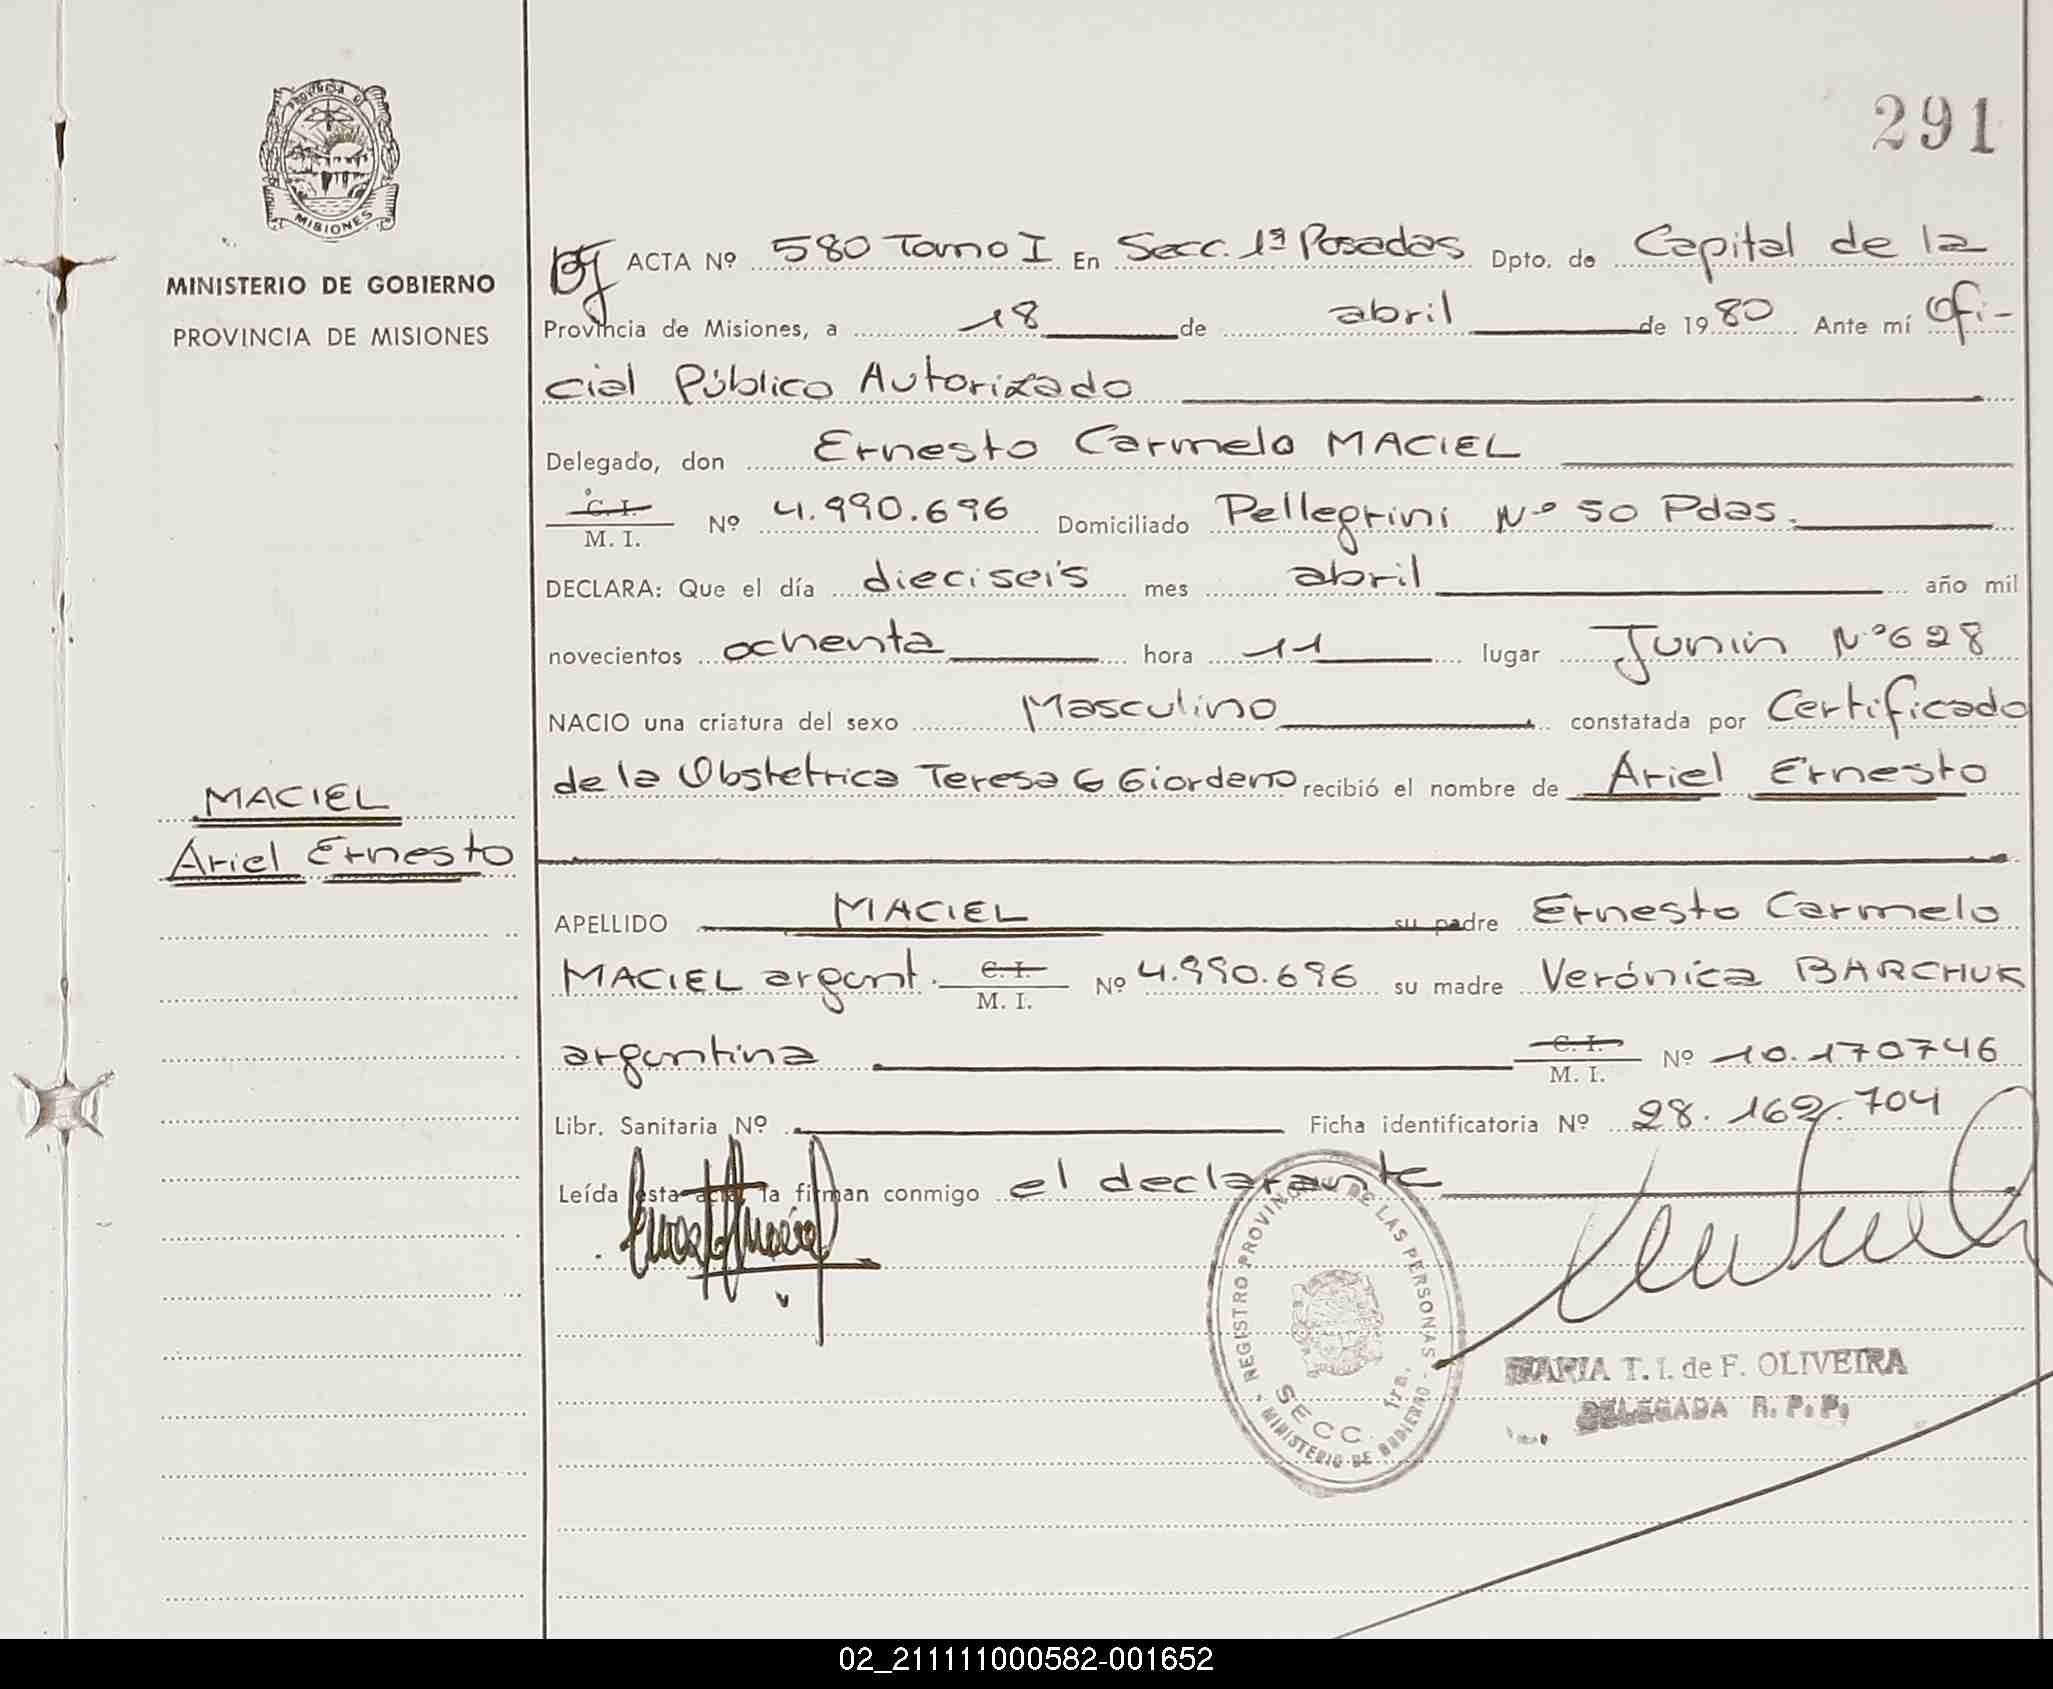 291
PROVINCIA DE
MISIONES
MINISTERIO DE GOBIERNO
PROVINCIA DE MISIONES
MACIEL
Ariel Ernesto
ACTA Nº 580 Tomo I En Secc. 1ª Posadas Dpto. de Capital de la
Provincia de Misiones, a 18 de abril de 1980 Ante mí Ofi-
cial Público Autorizado
Delegado, don Ernesto Carmelo MACIEL
C. I.
M. I. Nº 4.990.696 Domiciliado Pellegrini Nº 50 Pdas.
DECLARA: Que el día dieciseis mes abril año mil
novecientos ochenta hora 11 lugar Junin Nº 628
NACIO una criatura del sexo Masculino constatada por Certificado
de la Obstetrica Teresa G Giordano recibió el nombre de Ariel Ernesto
APELLIDO MACIEL su padre Ernesto Carmelo
MACIEL argent. C. I. M. I. Nº 4.990.696 su madre Verónica BARCHUK
argentina C. I. M. I. Nº 10.170746
Libr. Sanitaria Nº Ficha identificatoria Nº 28.162.704
Leída esta acta, la firman conmigo el declarante
REGISTRO PROVINCIAL DE LAS PERSONAS
SECC. 1ra.
MINISTERIO DE GOBIERNO
MARIA T. I. de F. OLIVEIRA
DELEGADA R. P. P.
02_211111000582-001652